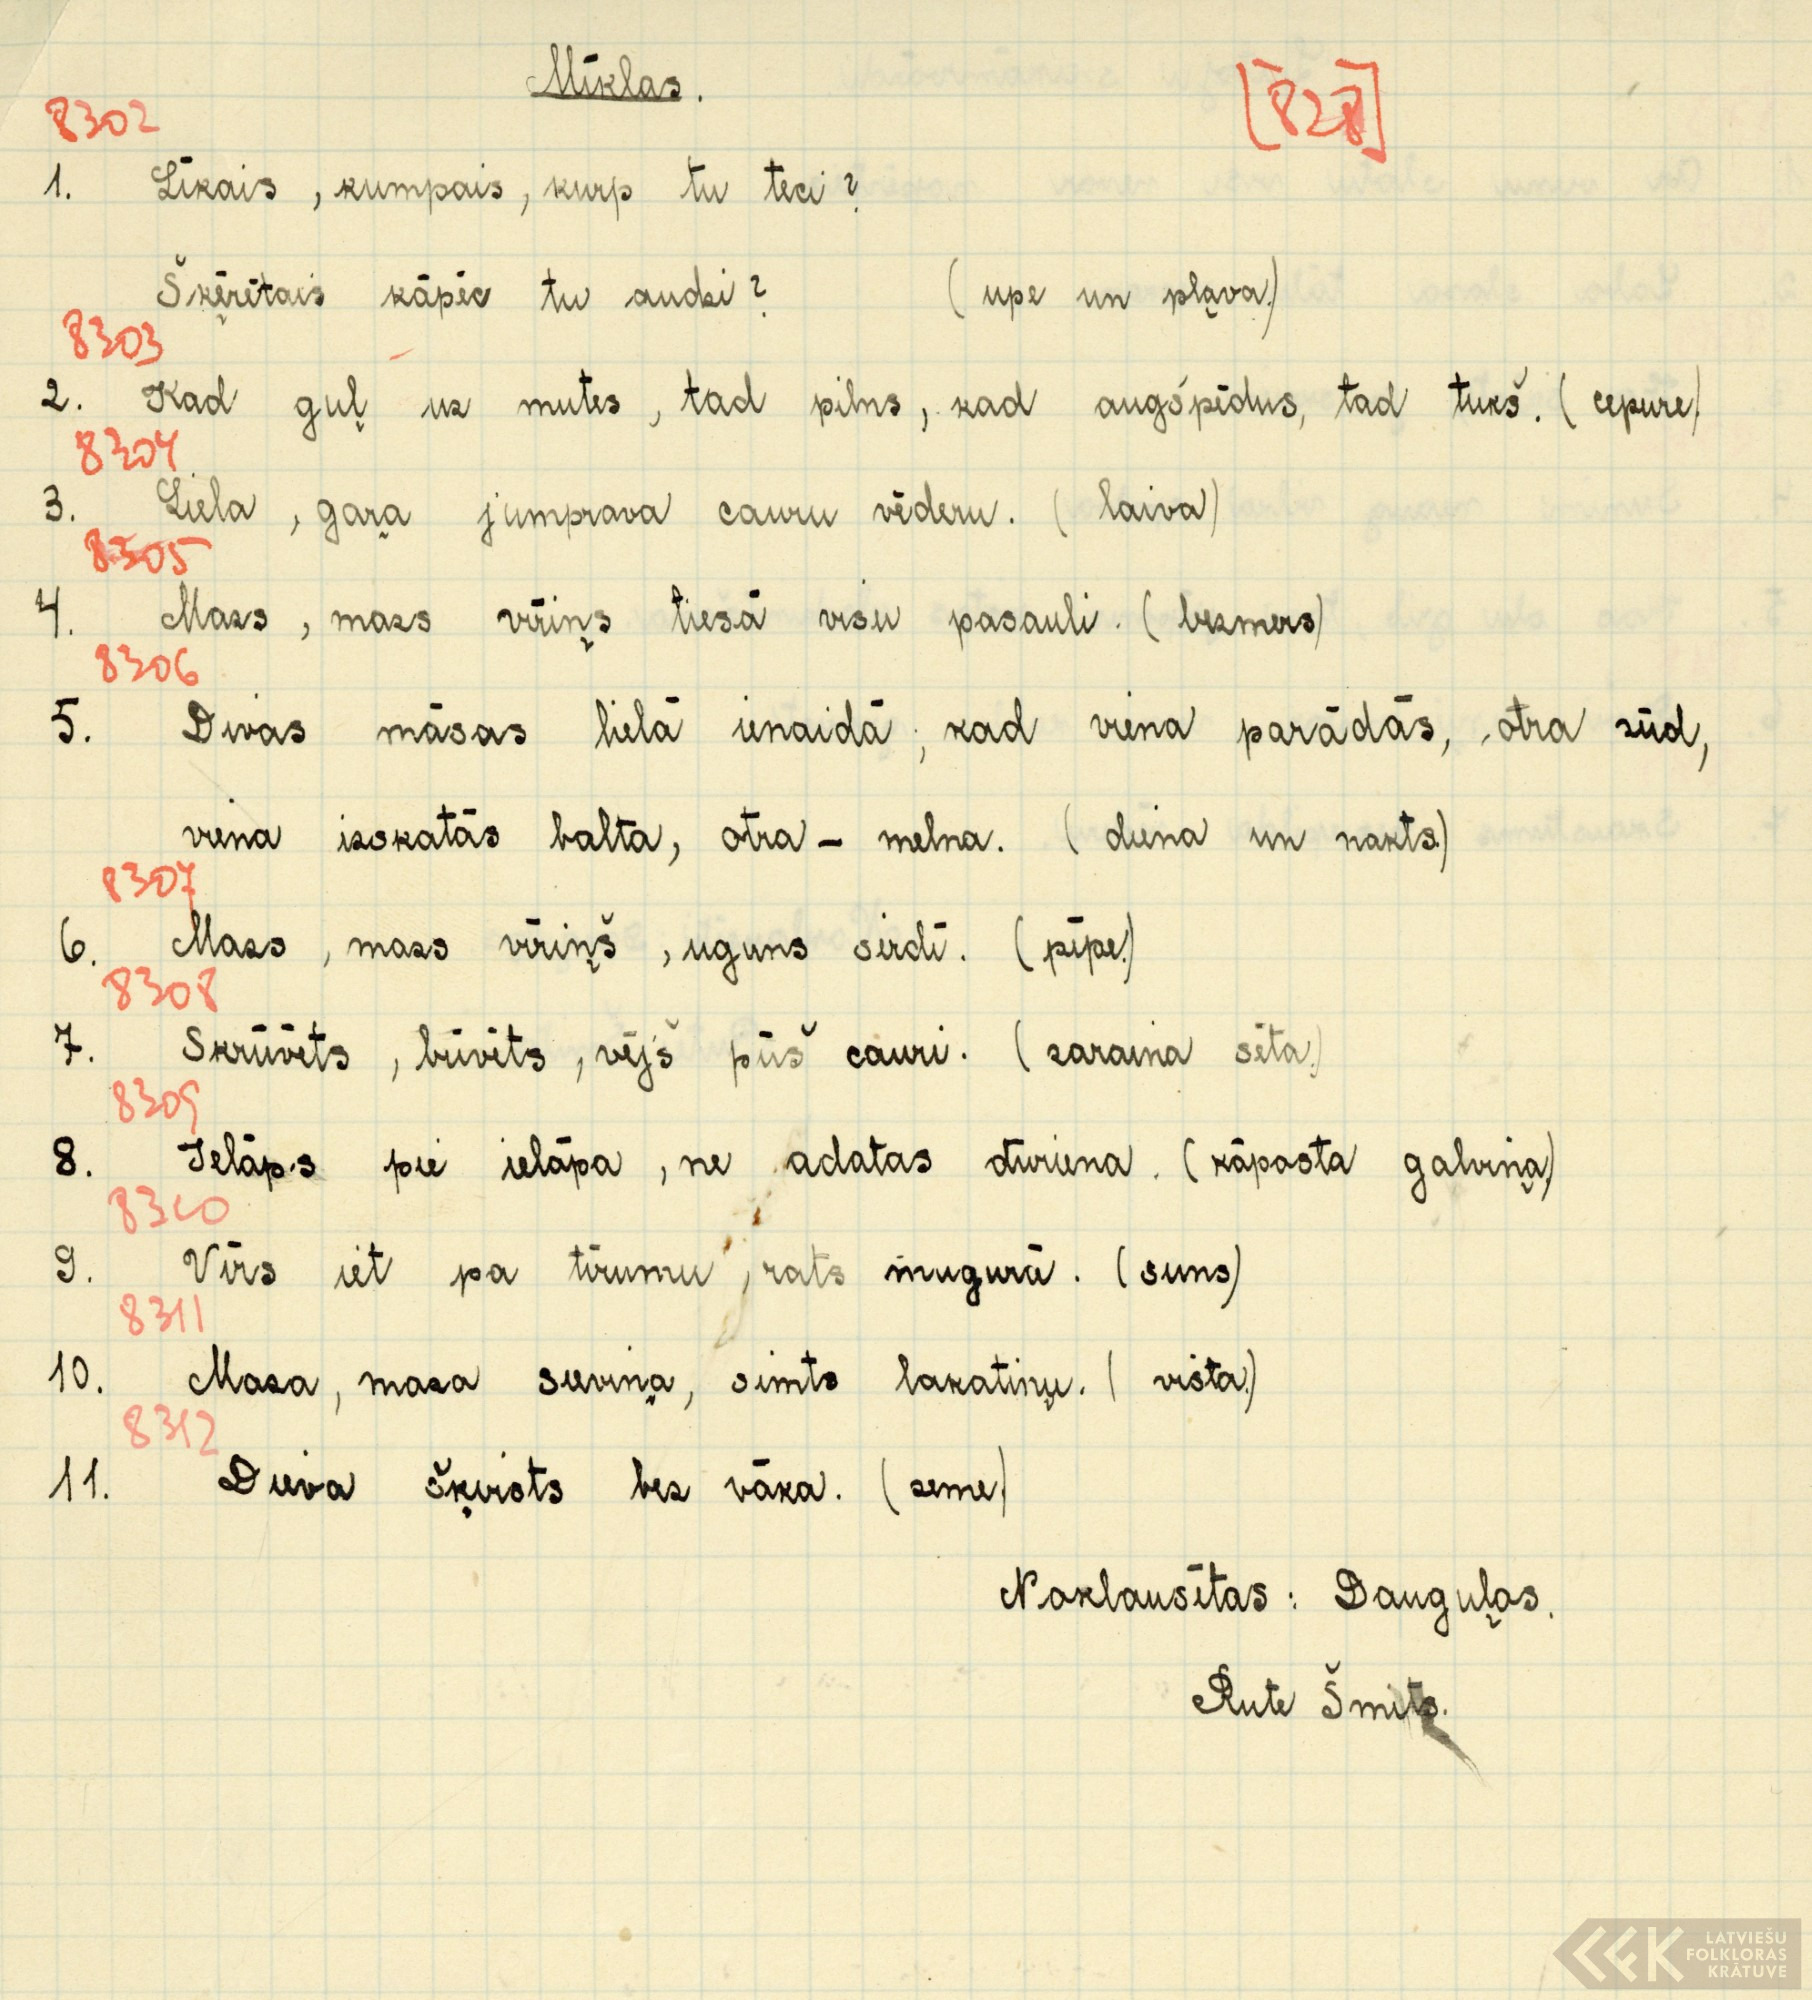 Mīklas.
[828]
8302
1. Līkais, kumpais, kurp tu teci?
Šķērētais kāpēc tu audzi? (upe un pļava.)
8303
2. Kad guļ uz mutes, tad pilns, kad augšpēdus, tad tukš. (cepure)
8304
3. Liela, gaŗa jumprava cauru vēderu. (laiva)
8305
4. Mazs, mazs vīriņs tiesā visu pasauli. (bezmers)
8306
5. Divas māsas lielā ienaidā; kad viena parādās, otra zūd,
viena izskatās balta, otra – melna. (diena un nakts.)
8307
6. Mazs, mazs vīriņš, uguns sirdī. (pīpe.)
8308
7. Skrūvēts, būvēts, vējš pūš cauri. (zaraina sēta.)
8309
8. Ielāps pie ielāpa, ne adatas dūriena. (kāposta galviņa)
8310
9. Vīrs iet pa tīrumu, rats mugurā. (suns)
8311
10. Maza, maza sieviņa, simts lakatiņu. (vista.)
8312
11. Dieva šķirsts bez vāka. (zeme)
Noklausītas: Dauguļos.
Rute Šmits.
LATVIEŠU
FOLKLORAS
KRĀTUVE